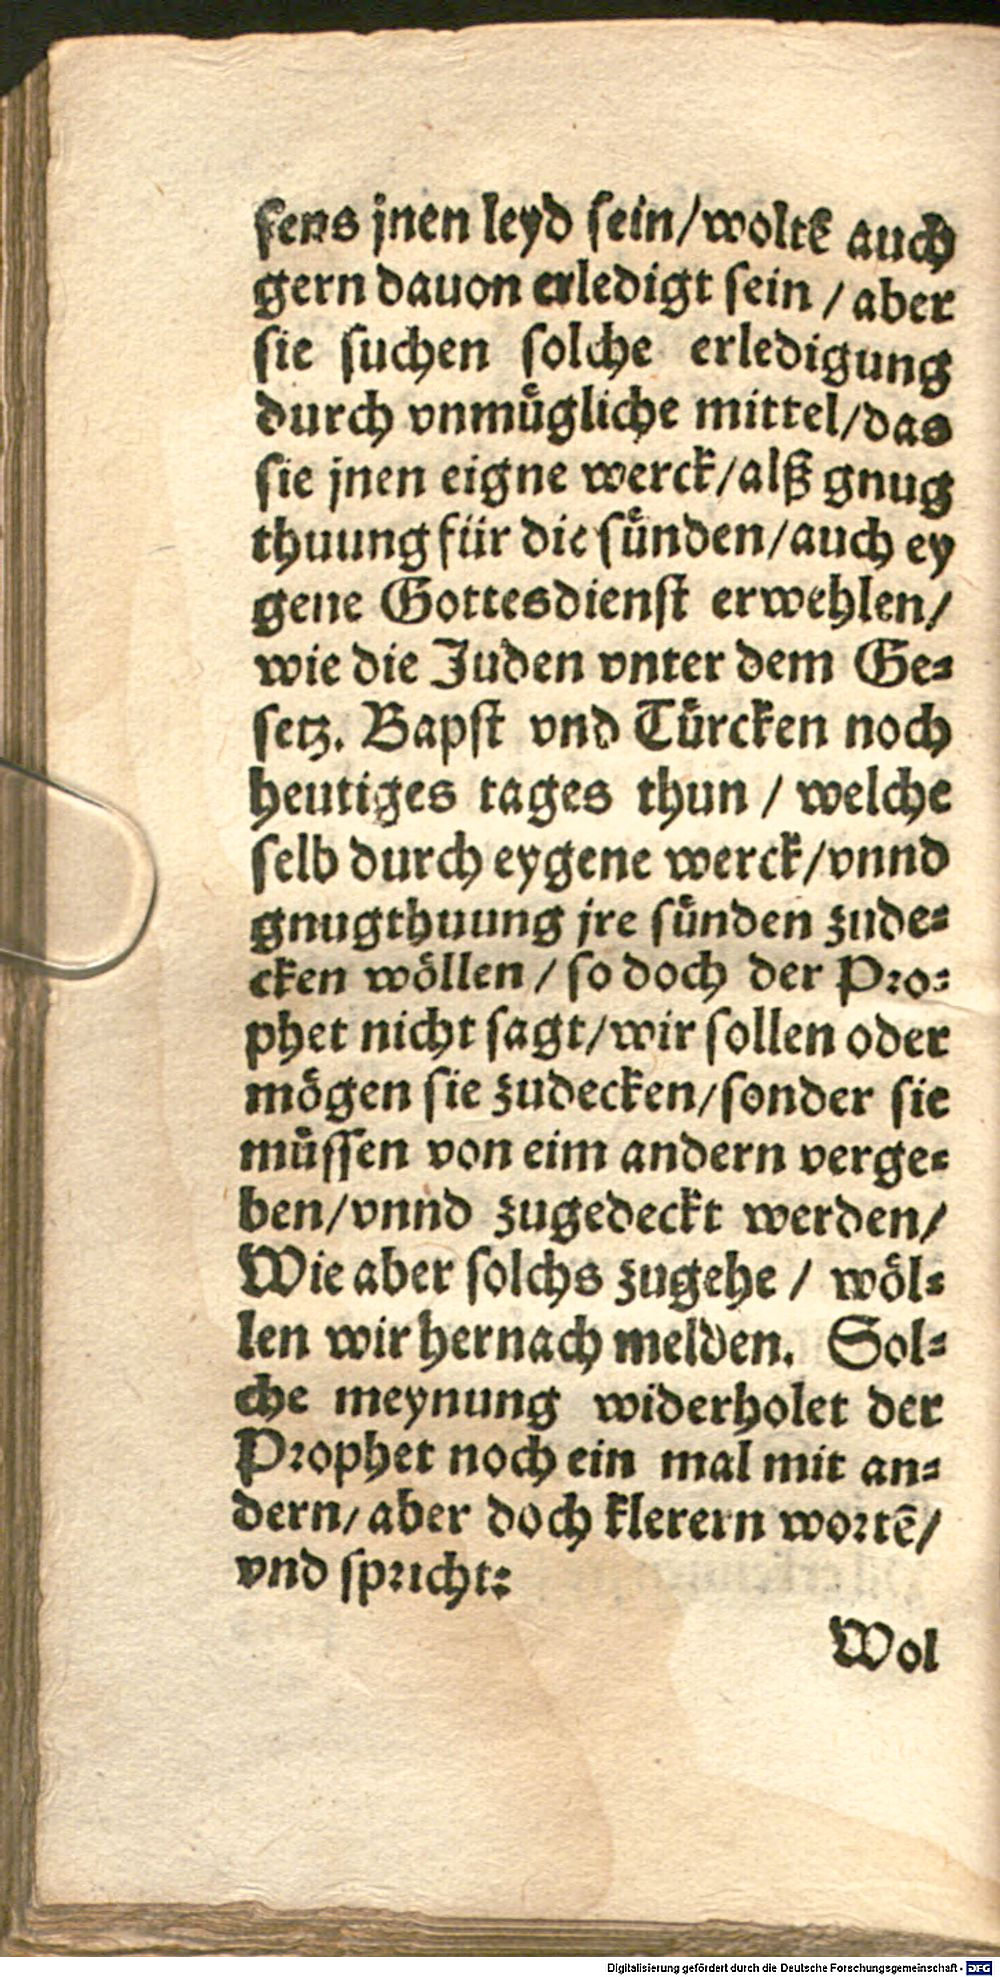 sens jnen leyd sein/woltē auch
gern dauon erledigt sein / aber
sie suchen solche erledigung
durch vnmuͤgliche mittel/das
sie jnen eigne werck/alß gnug
thuung für die suͤnden/auch ey
gene Gottesdienst erwehlen/
wie die Juden vnter dem Ge⸗
setz. Bapst vnd Tuͤrcken noch
heutiges tages thun / welche
selb durch eygene werck/vnnd
gnugthuung jre suͤnden zude⸗
cken woͤllen / so doch der Pro⸗
phet nicht sagt/wir sollen oder
moͤgen sie zudecken/sonder sie
muͤssen von eim andern verge⸗
ben/vnnd zugedeckt werden/
Wie aber solchs zugehe / woͤl⸗
len wir hernach melden. Sol⸗
che meynung widerholet der
Prophet noch ein mal mit an⸗
dern/aber doch klerern wortē/
vnd spricht:
Wol
Digitalisierung gefördert durch die Deutsche Forschungsgemeinschaft - DFG